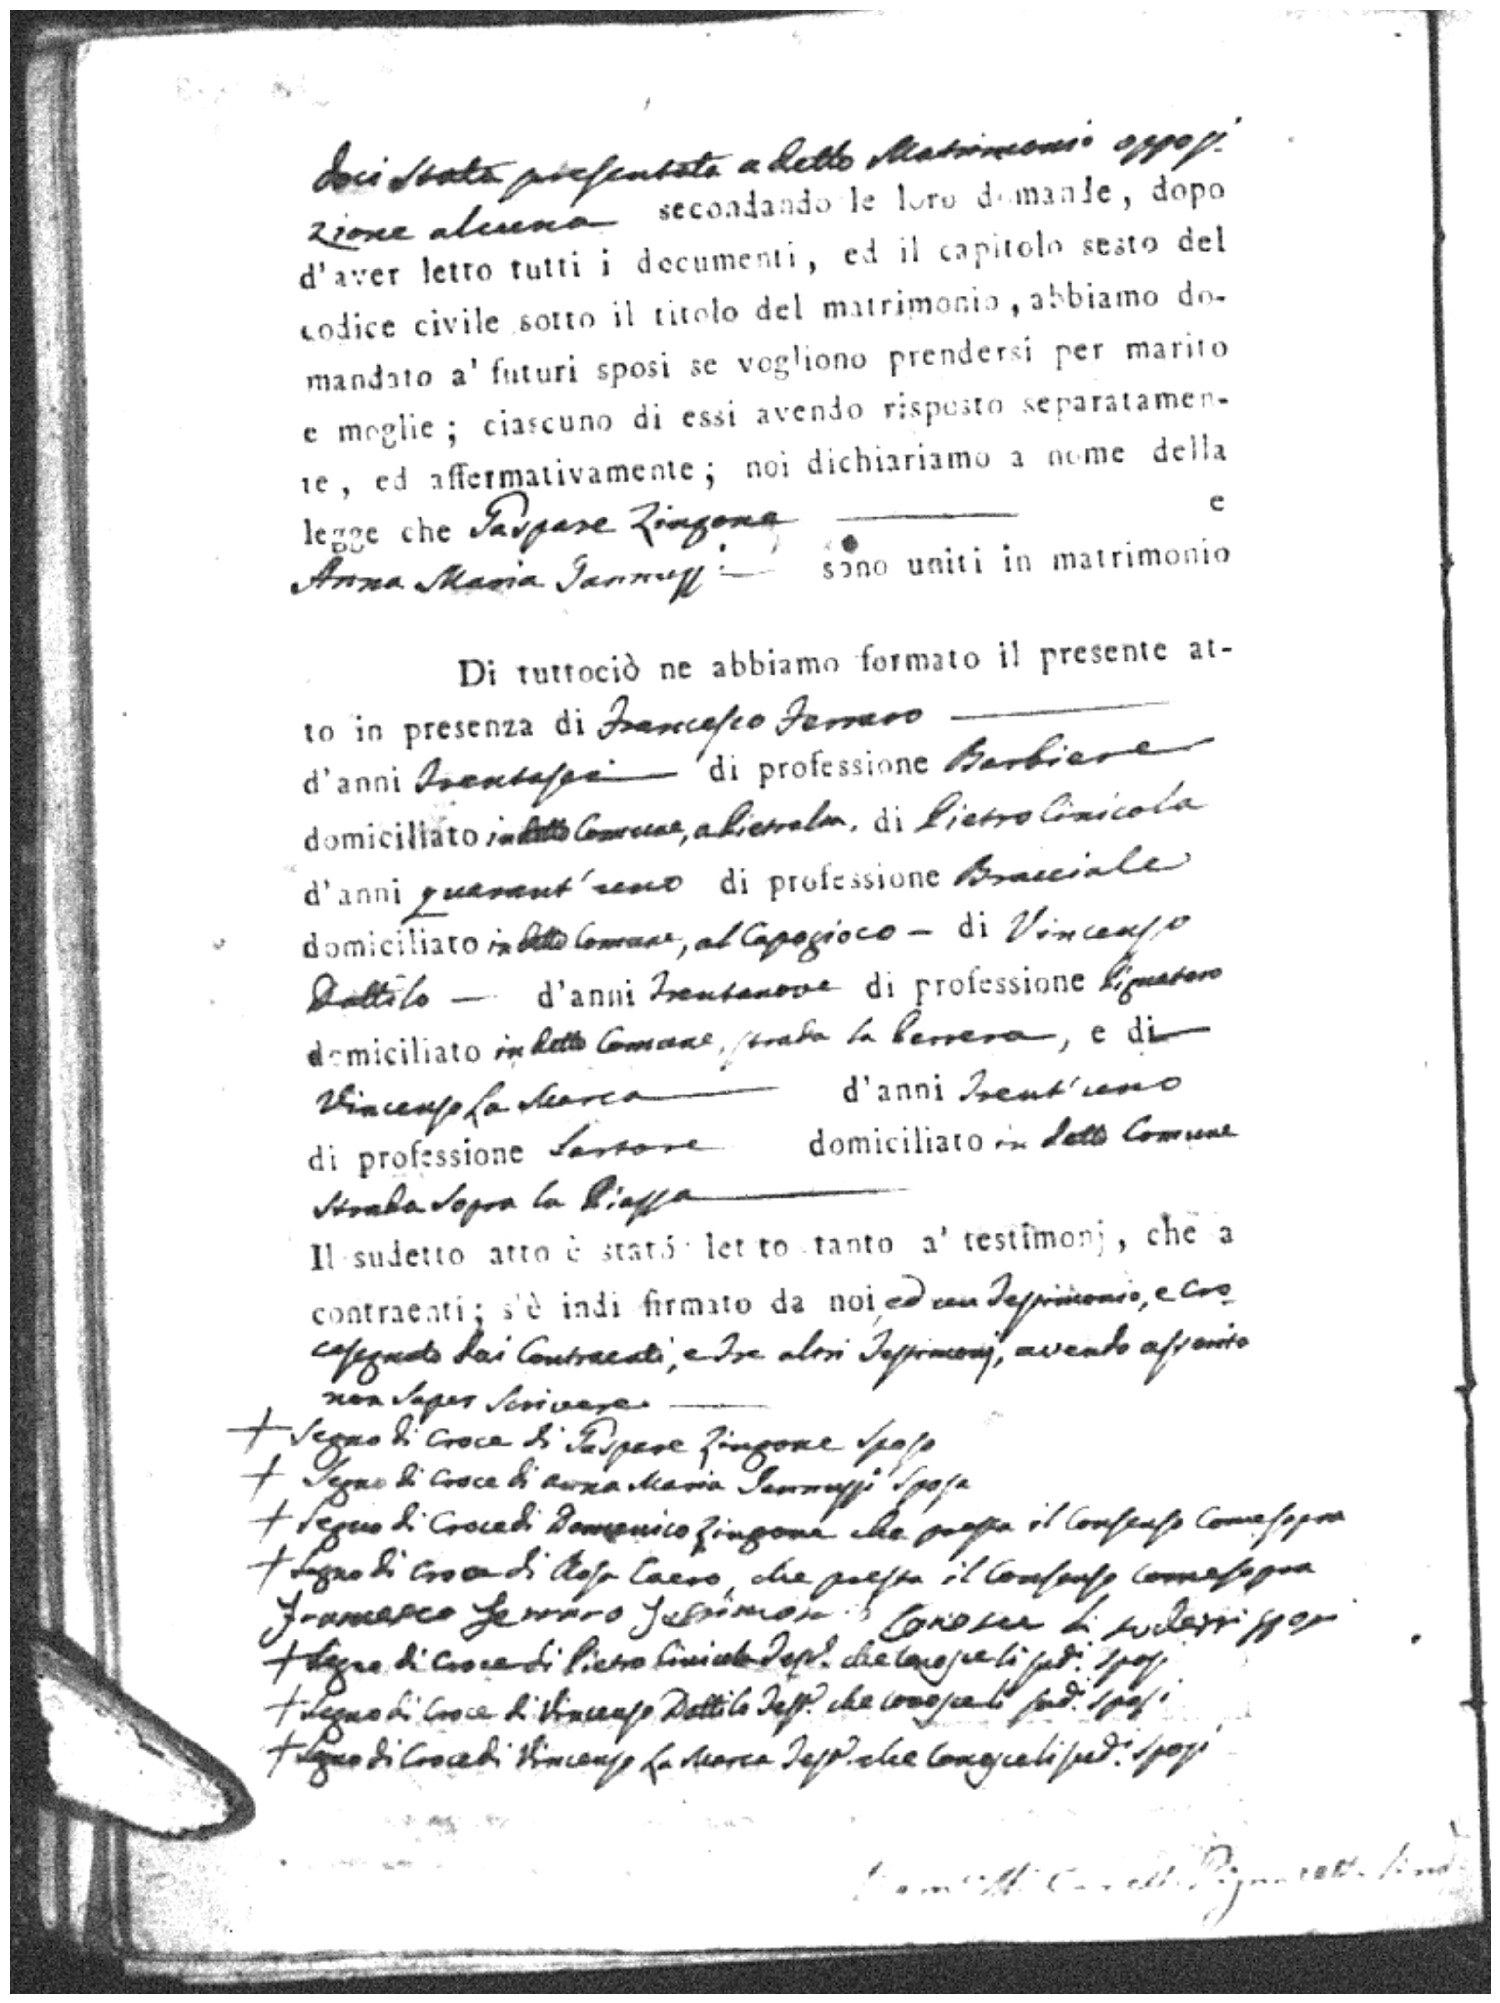 doci stata presentata a detto Matrimonio opposi-
zione alcuna secondando le loro domande, dopo
d'aver letto tutti i documenti, ed il capitolo sesto del
codice civile sotto il titolo del matrimonio, abbiamo do-
mandato a' futuri sposi se vogliono prendersi per marito
e moglie; ciascuno di essi avendo risposto separatamen-
te, ed affermativamente; noi dichiariamo a nome della
legge che Gaspare Zingone e
Anna Maria Jannuzzi sono uniti in matrimonio
Di tuttociò ne abbiamo formato il presente at-
to in presenza di Francesco Ferraro
d'anni trentasei di professione Barbiere
domiciliato in detto Comune, a Pietralta, di Pietro Cinicola
d'anni quarant'uno di professione Bracciale
domiciliato in detto Comune, al Capogioco — di Vincenzo
Dattilo — d'anni trentanove di professione Pignataro
domiciliato in detto Comune, strada la Perrera, e di
Vincenzo La Marca d'anni trent'uno
di professione Sartore domiciliato in detto Comune
strada sopra la Piazza
Il sudetto atto è stato letto tanto a' testimonj, che a
contraenti; s'è indi firmato da noi, ed un Testimonio, e cro
cesegnato dai Contraenti, e tre altri Testimonj, avendo asserito
non saper scrivere.
+ Segno di Croce di Gaspare Zingone sposo
+ Segno di Croce di Anna Maria Jannuzzi sposa
+ Segno di Croce di Domenico Zingone che presta il Consenso come sopra
+ Segno di Croce di Rosa Caero, che presta il Consenso come sopra
Francesco Ferraro Testimone Conosce li sudetti sposi
+ Segno di Croce di Pietro Cinicola Test.e che conosce li sud.i sposi
+ Segno di Croce di Vincenzo Dattilo Test.e che conosce li sud.i sposi
+ Segno di Croce di Vincenzo La Marca Test.e che conosce li sud.i sposi